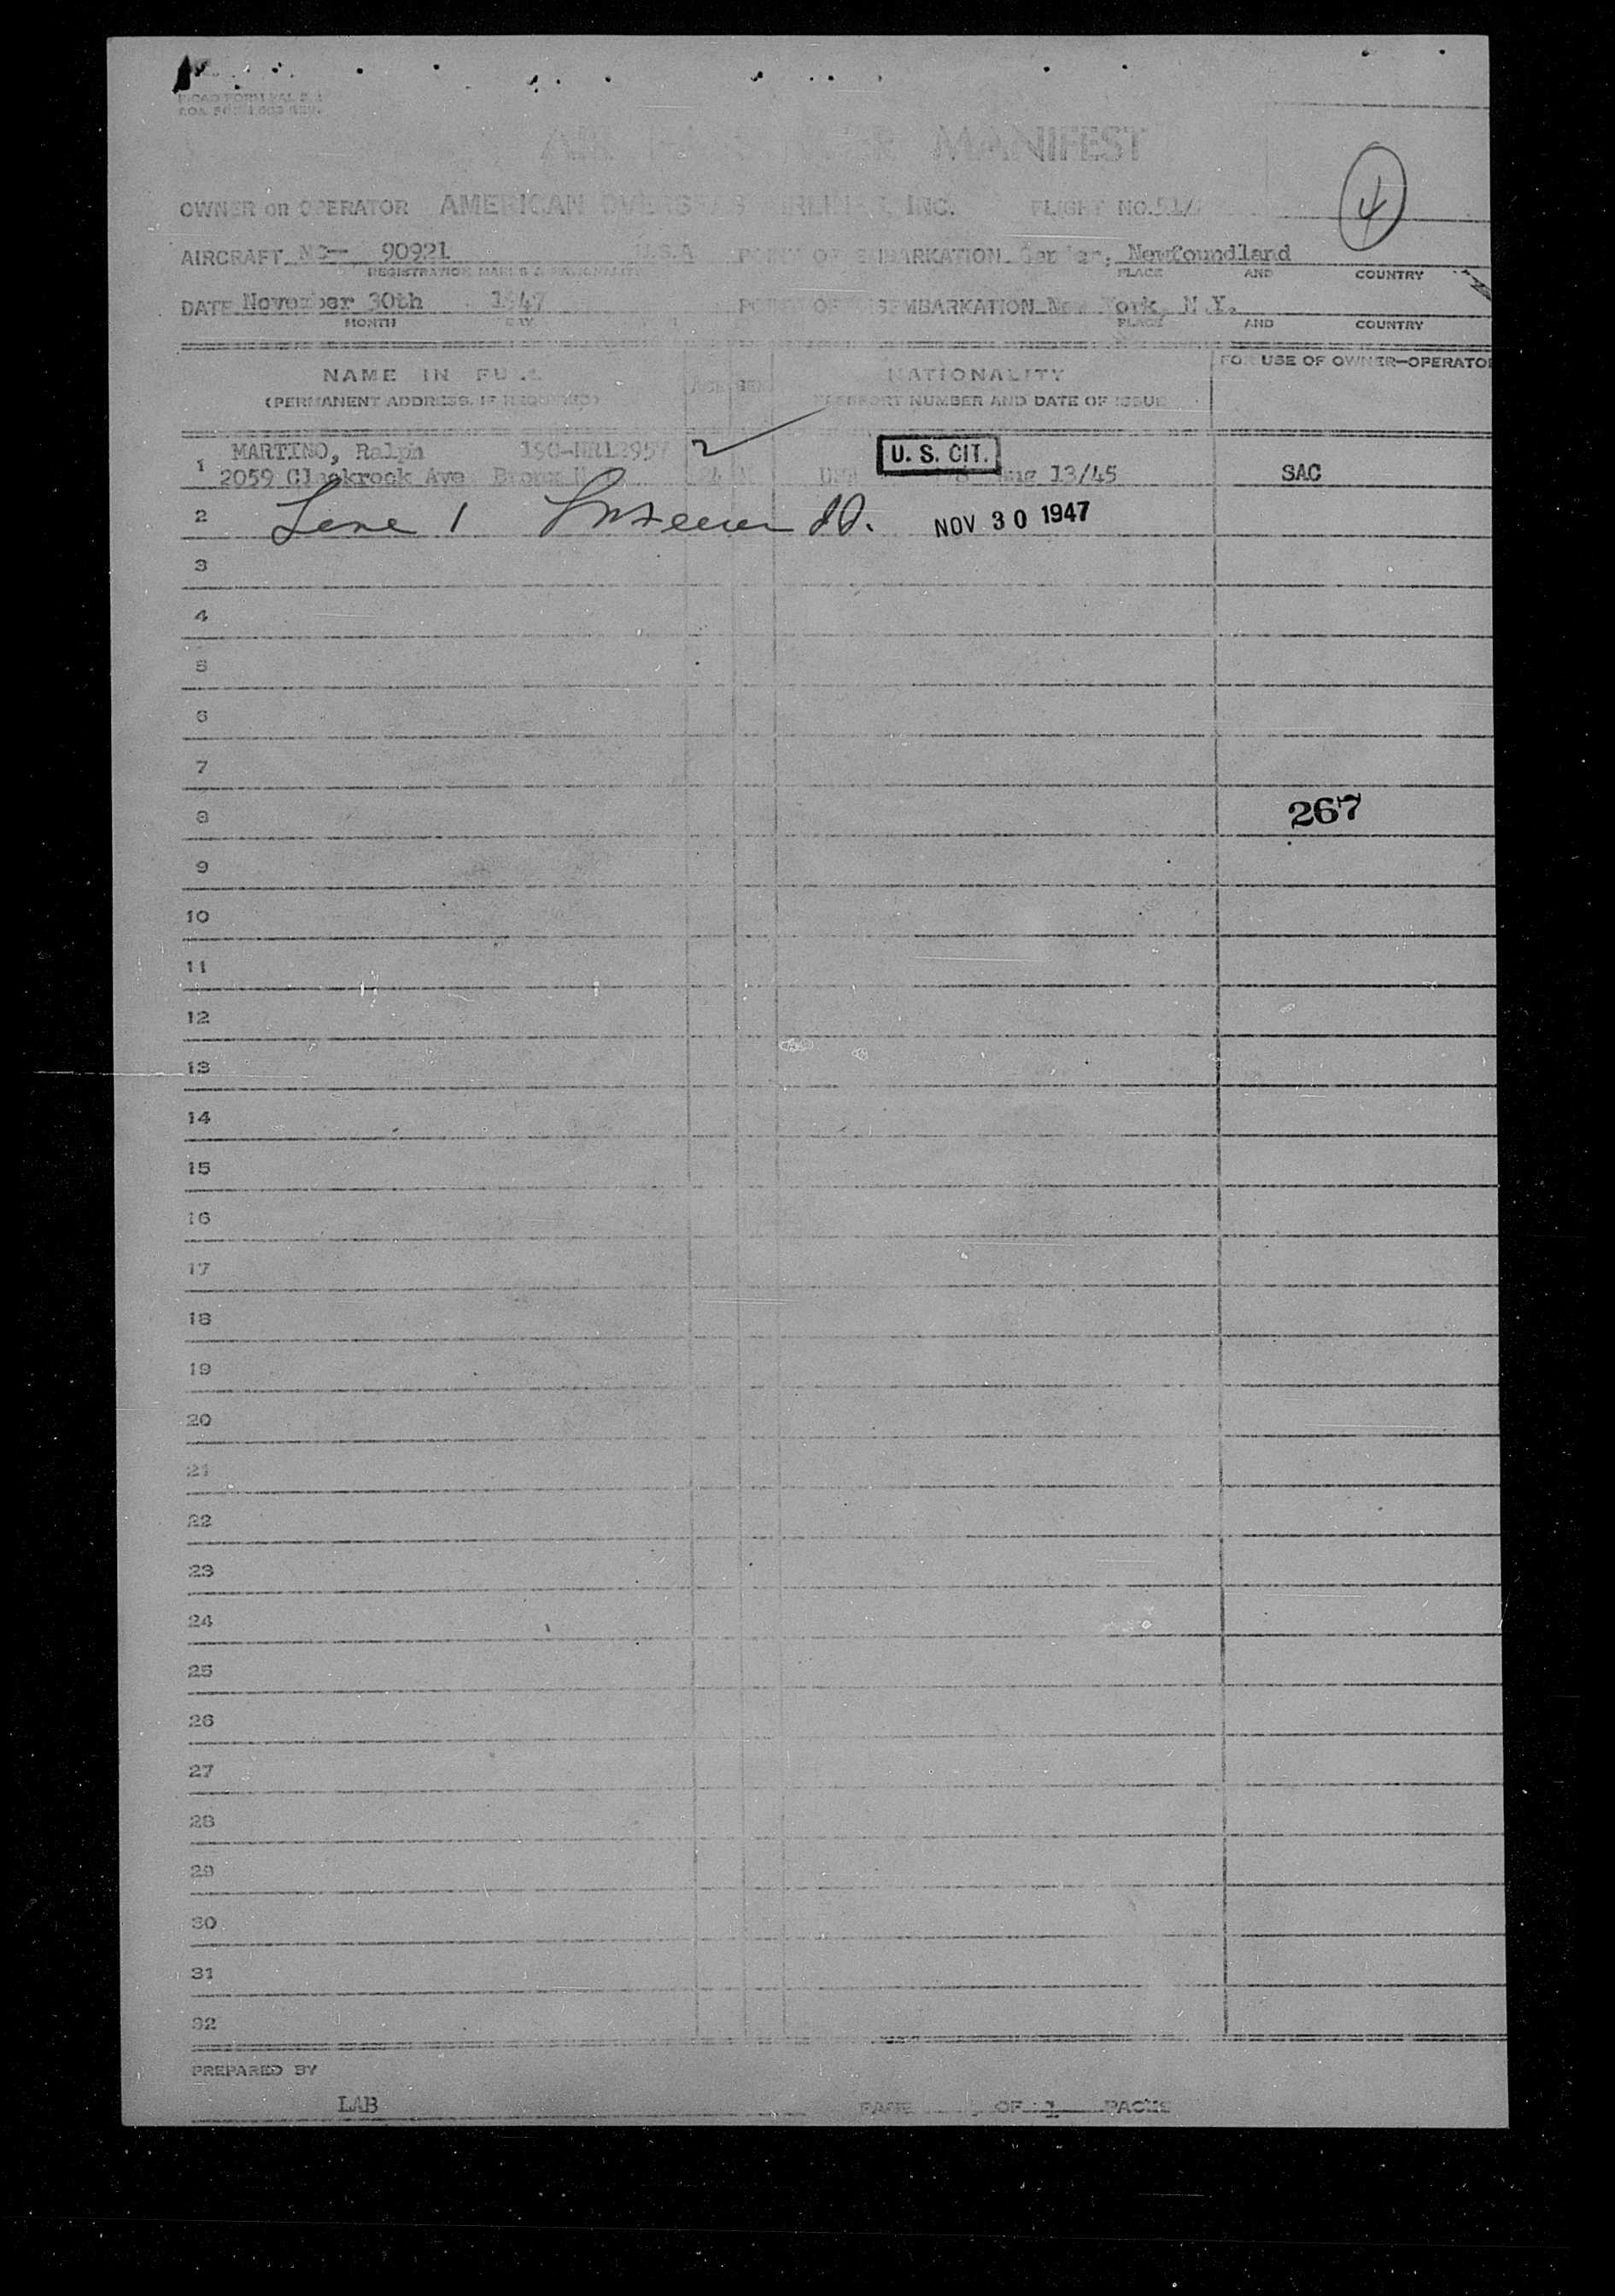 AIR PASSENGER MANIFEST
OWNER OR OPERATOR AMERICAN OVERSEAS AIRLINES, INC. FLIGHT NO. 51/
4
AIRCRAFT NC- 90921 U.S.A POINT OF EMBARKATION Gander, Newfoundland
REGISTRATION MARKS & NATIONALITY PLACE AND COUNTRY
DATE November 30th 1947 POINT OF DISEMBARKATION New York, N.Y.
MONTH DAY PLACE AND COUNTRY
NAME IN FULL AGE SEX NATIONALITY FOR USE OF OWNER-OPERATOR
(PERMANENT ADDRESS, IF REQUIRED) PASSPORT NUMBER AND DATE OF ISSUE
MARTINO, Ralph U. S. CIT.
1 2059 Ave Bronx Aug 13/45 SAC
2 Line 1 NOV 30 1947
3
4
5
6
7
8 267
9
10
11
12
13
14
15
16
17
18
19
20
21
22
23
24
25
26
27
28
29
30
31
32
PREPARED BY
LAB PAGE OF 1 PAGES